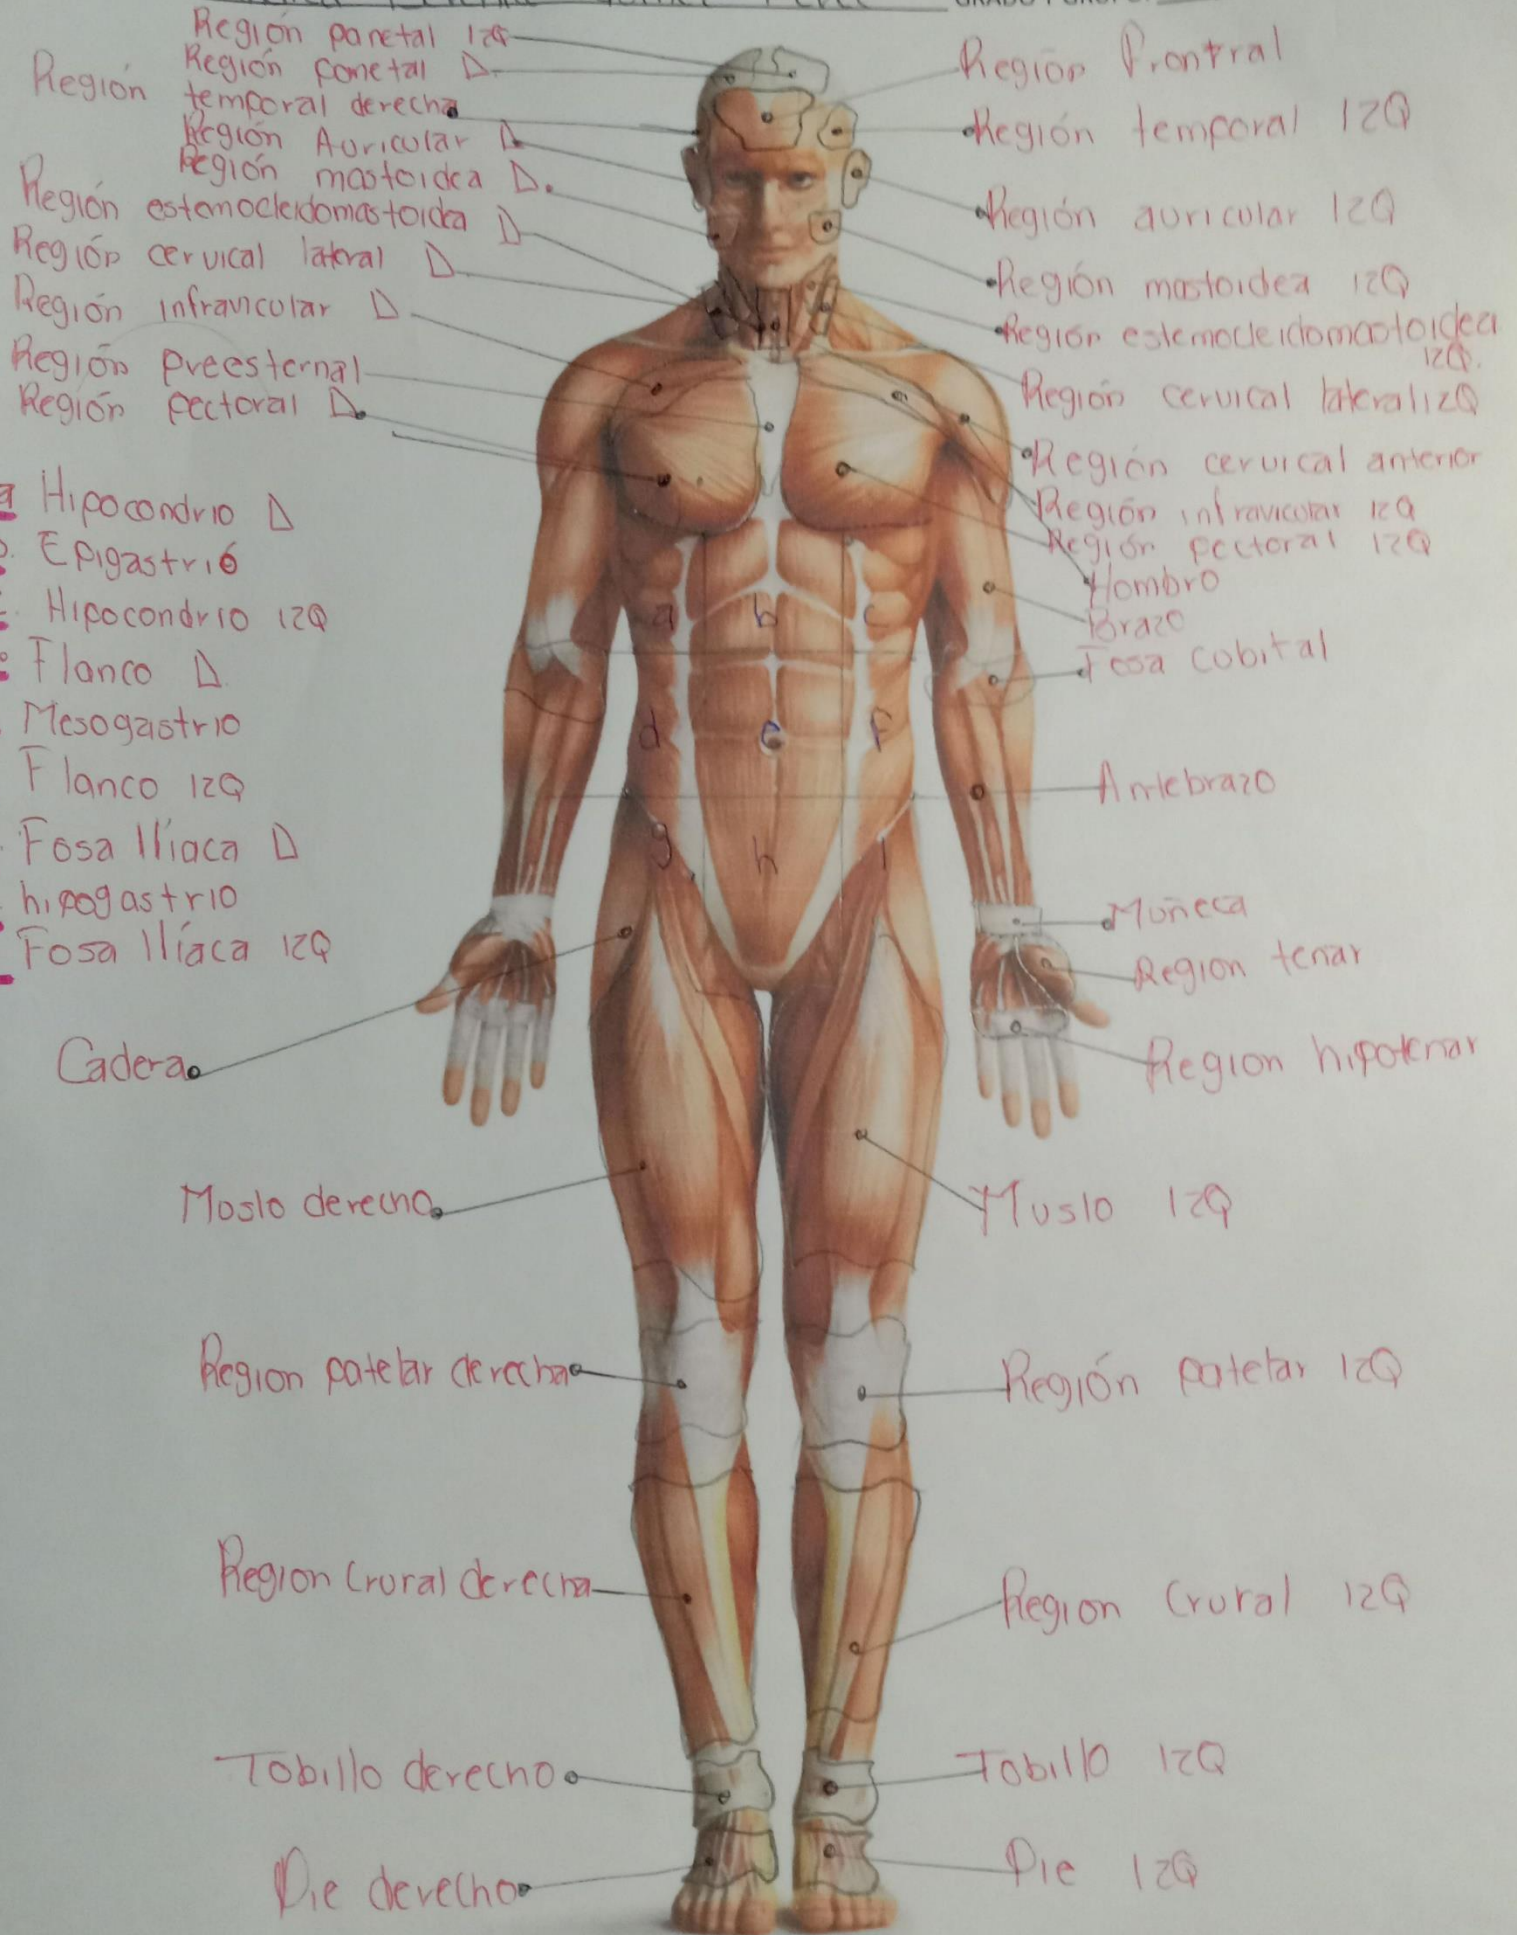 Región parietal IZQ
Región parietal D.
Región temporal derecha
Región Auricular D
Región mastoidea D.
Región esternocleidomastoidea D
Región cervical lateral D
Región infravicular D
Región preesternal
Región pectoral D.
a Hipocondrio D
Epigastrio
Hipocondrio IZQ
Flanco D.
Mesogastrio
Flanco IZQ
Fosa Ilíaca D
hipogastrio
Fosa Ilíaca IZQ
Cadera
Moslo derecho
Region patelar derecha
Region Crural derecha
Tobillo derecho
Pie derecho
Región Frontral
Región temporal IZQ
Región auricular IZQ
Región mastoidea IZQ
Región esternocleidomastoidea
IZQ.
Región cervical lateral IZQ
Región cervical anterior
Región infravicular IZQ
Región pectoral IZQ
Hombro
Brazo
Fosa cobital
Antebrazo
Moñeca
Region tenar
Region hipotenar
Muslo IZQ
Región patelar IZQ
Region Crural IZQ
Tobillo IZQ
Pie IZQ
a b c
d e f
g h i